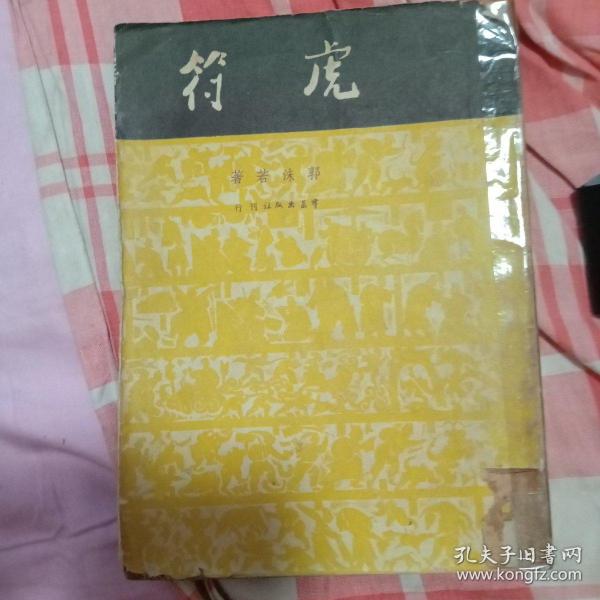 虎符
郭沫若著
羣益出版社刊行
孔夫子旧書网
www.kongfz.com